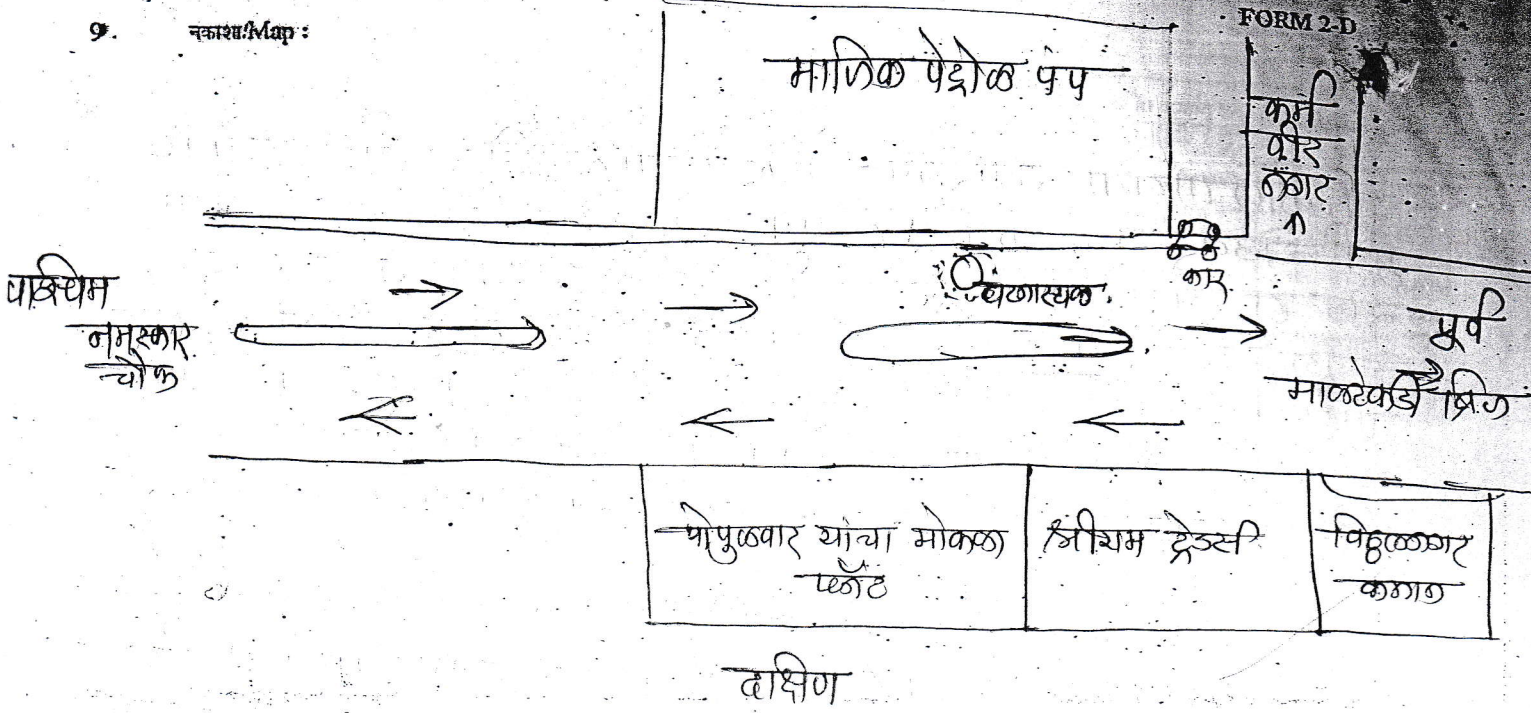 9. नकाशा/Map :
FORM 2-D
माणिक पेट्रोल पंप
कर्म
वीर
नगर
पश्चिम
नमस्कार
चौक
घटनास्थळ.
कार.
पूर्व
माळटेकडी ब्रिज
पोपुलवार यांचा मोकळा
प्लॉट
श्रीराम ट्रेडर्स
विठ्ठलनगर
कमान
दक्षिण